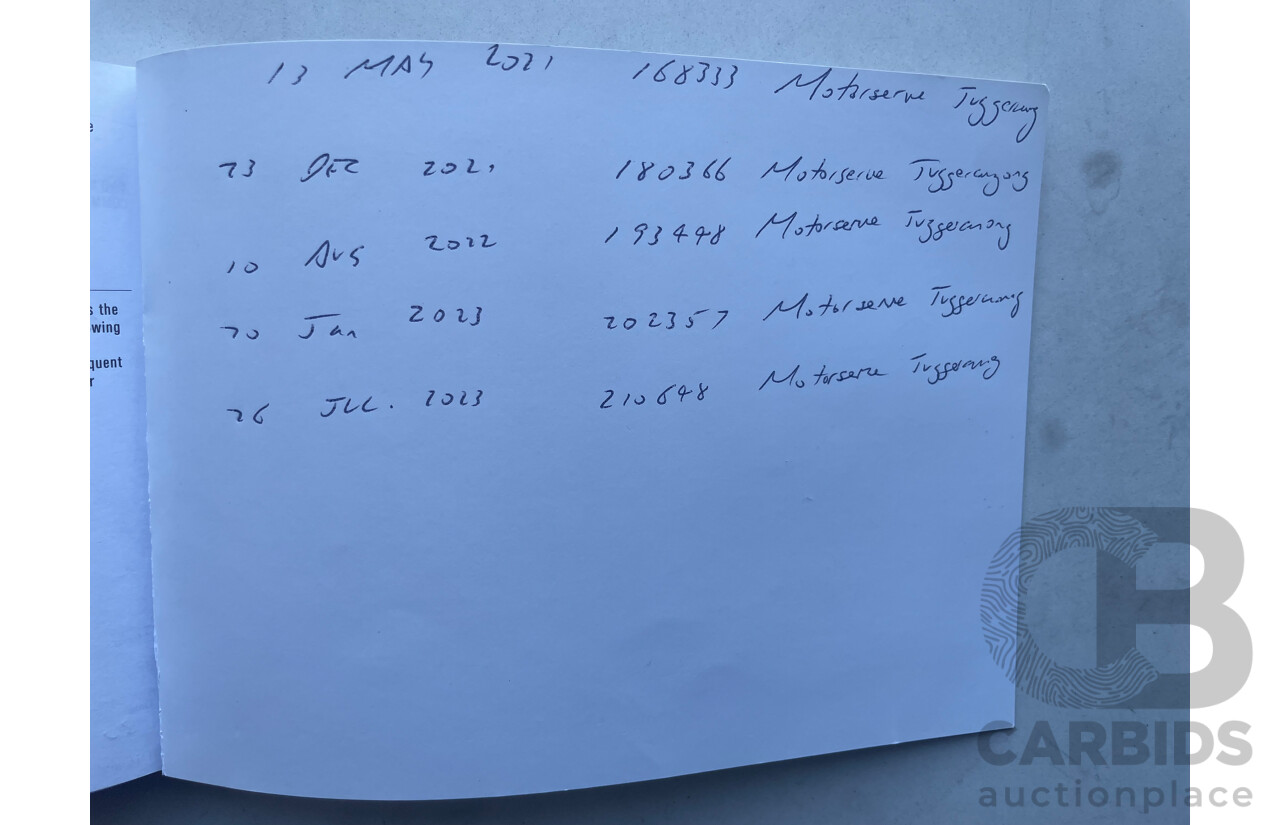 13 MAY 2021 168333 Motorserve Tuggeranong
23 DEC 2021 180366 Motorserve Tuggeranong
10 AUG 2022 193448 Motorserve Tuggeranong
20 Jan 2023 202357 Motorserve Tuggeranong
26 JUL. 2023 210648 Motorserve Tuggeranong
e
s the
wing
quent
r
CB
CARBIDS
auctionplace